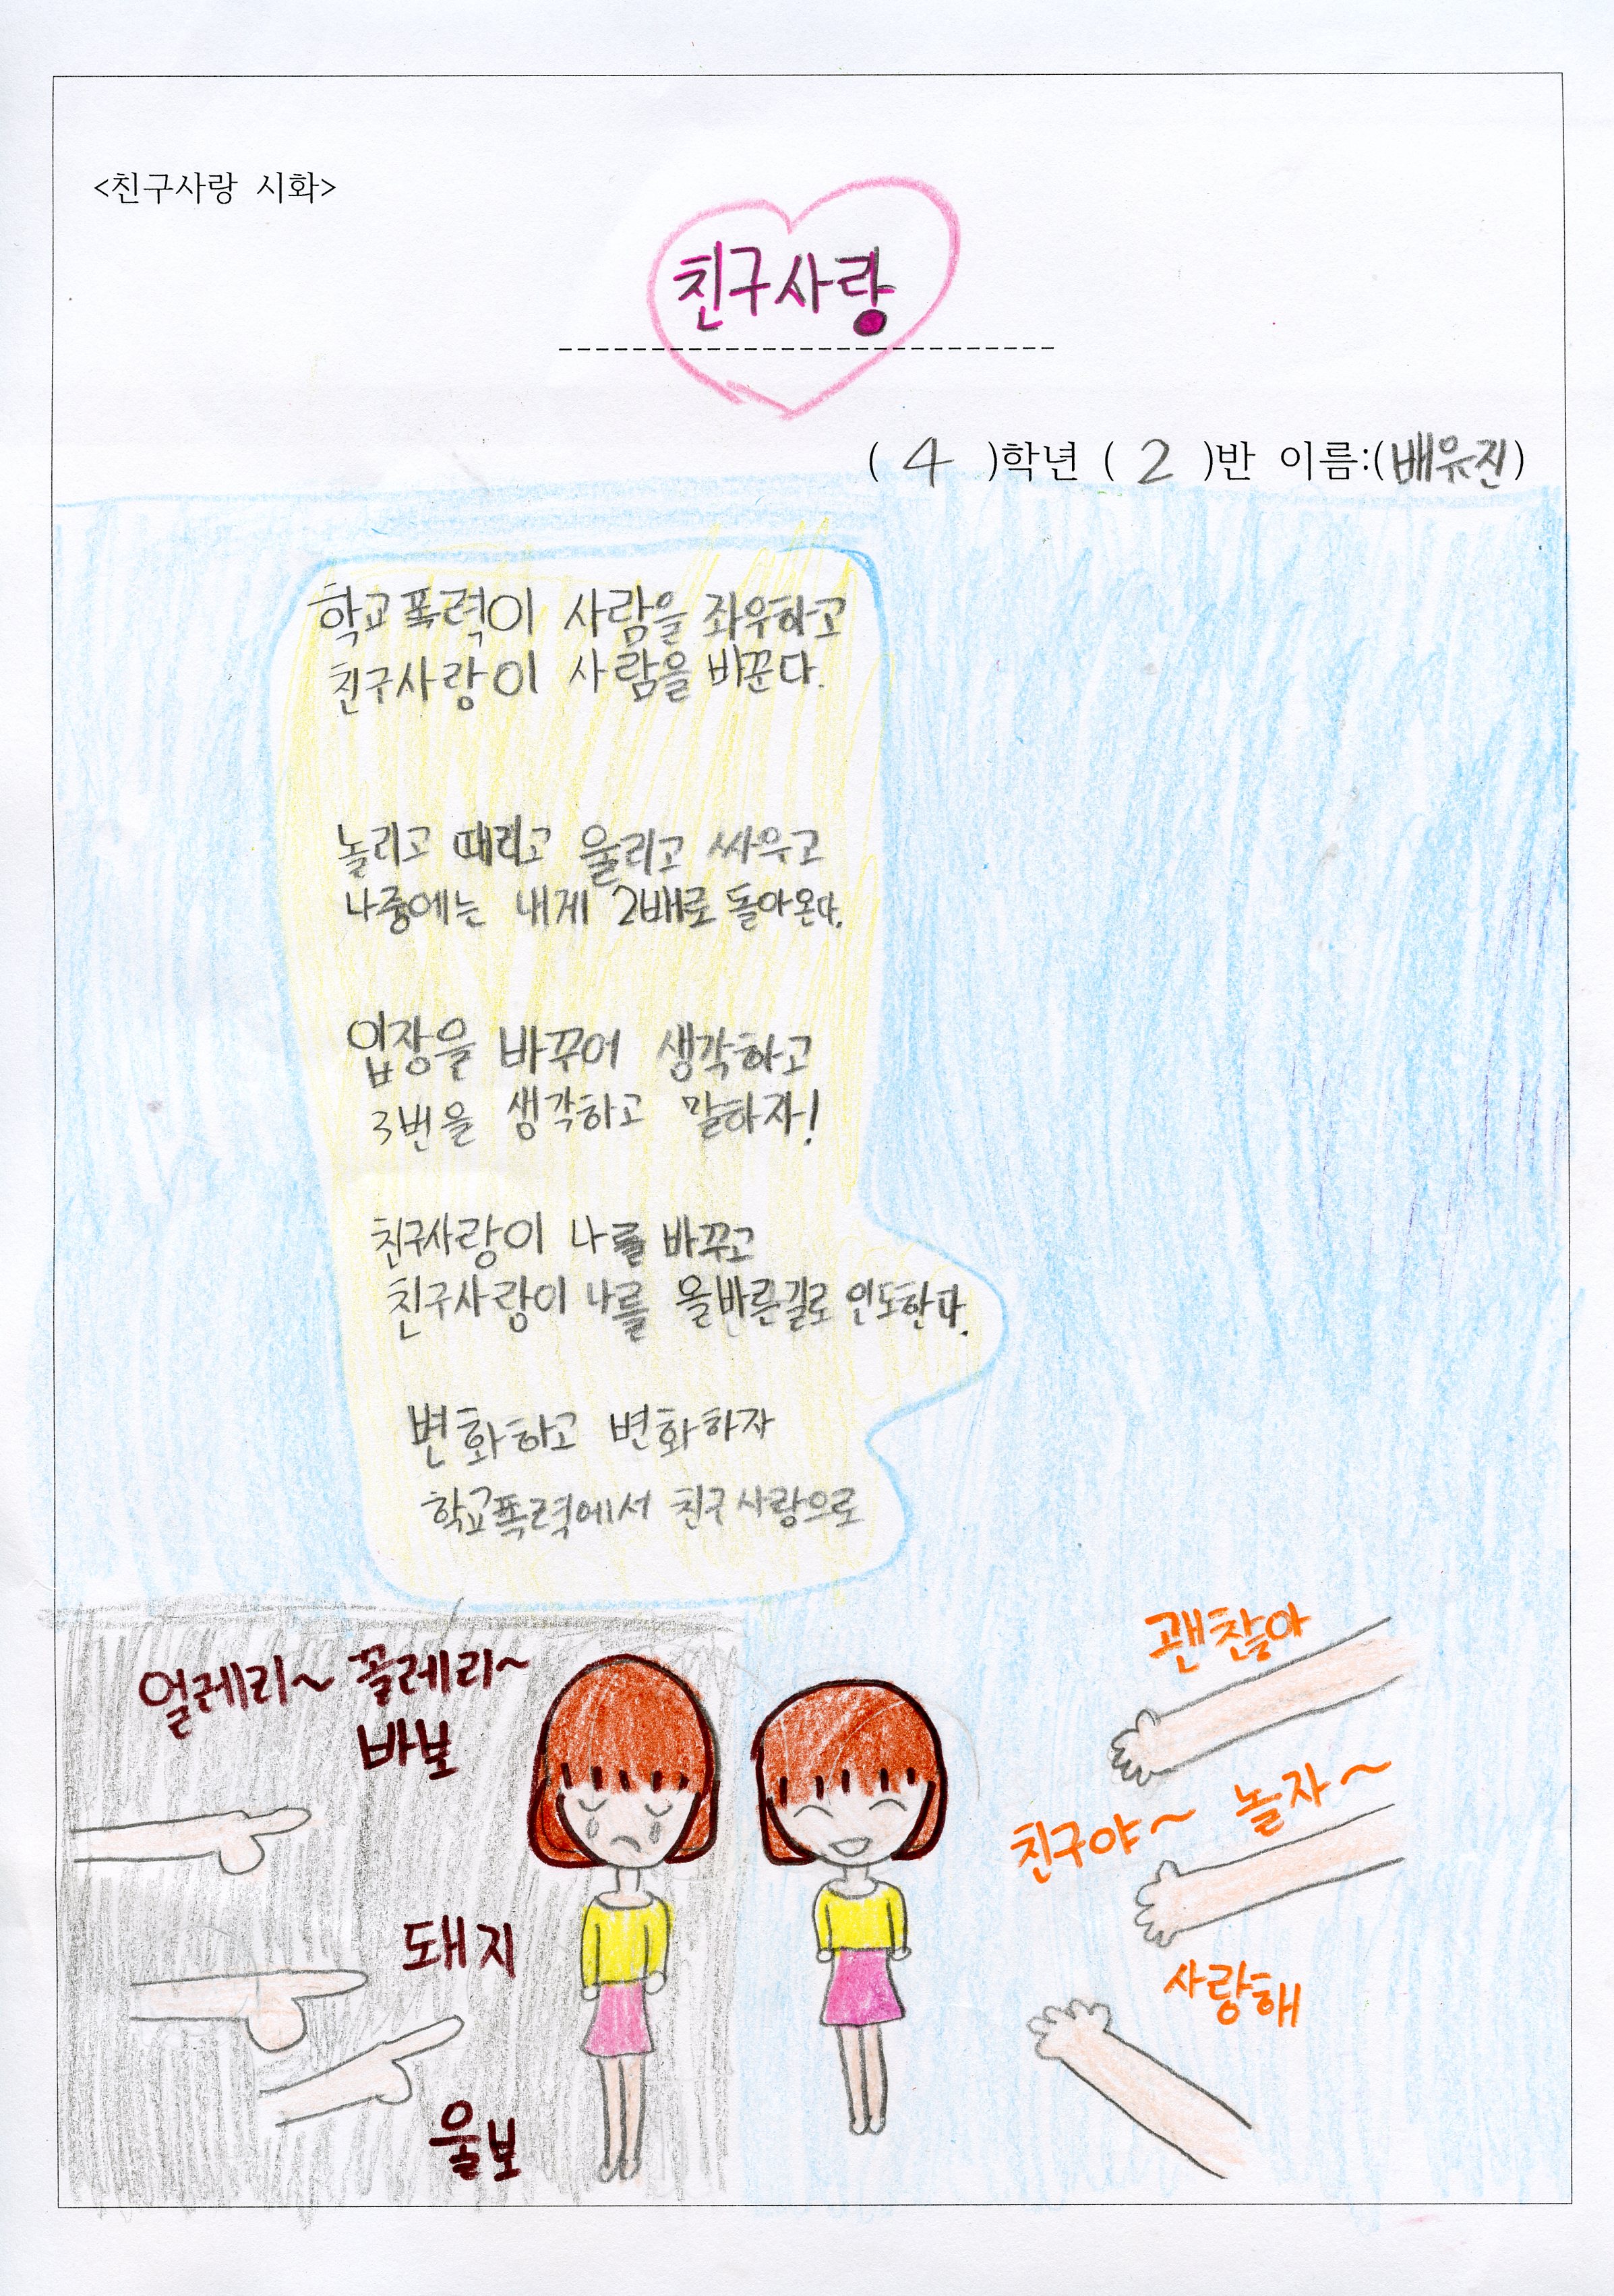 <친구사랑 시화>
친구사랑
( 4 )학년 ( 2 )반 이름:(배유진)
학교폭력이 사람을 좌우하고
친구사랑이 사람을 바꾼다.
놀리고 때리고 울리고 싸우고
나중에는 내게 2배로 돌아온다.
입장을 바꾸어 생각하고
3번을 생각하고 말하자!
친구사랑이 나를 바꾸고
친구사랑이 나를 올바른길로 인도한다.
변화하고 변화하자
학교폭력에서 친구사랑으로
얼레리~ 꼴레리~
바보
돼지
울보
괜찮아
친구야~ 놀자~
사랑해